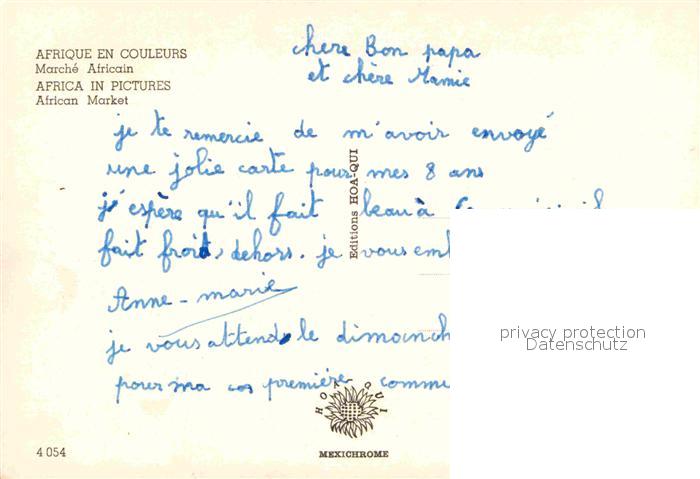 AFRIQUE EN COULEURS
Marché Africain
AFRICA IN PICTURES
African Market
chere Bon papa
et chère Mamie
je te remercie de m'avoir envoyé
une jolie carte pour mes 8 ans
j'espère qu'il fait beau à
fait froid dehors. je vous
Anne-marie
je vous attends le
pour ma première
Editions HOA-QUI
privacy protection
Datenschutz
HOA-QUI
4 054
MEXICHROME